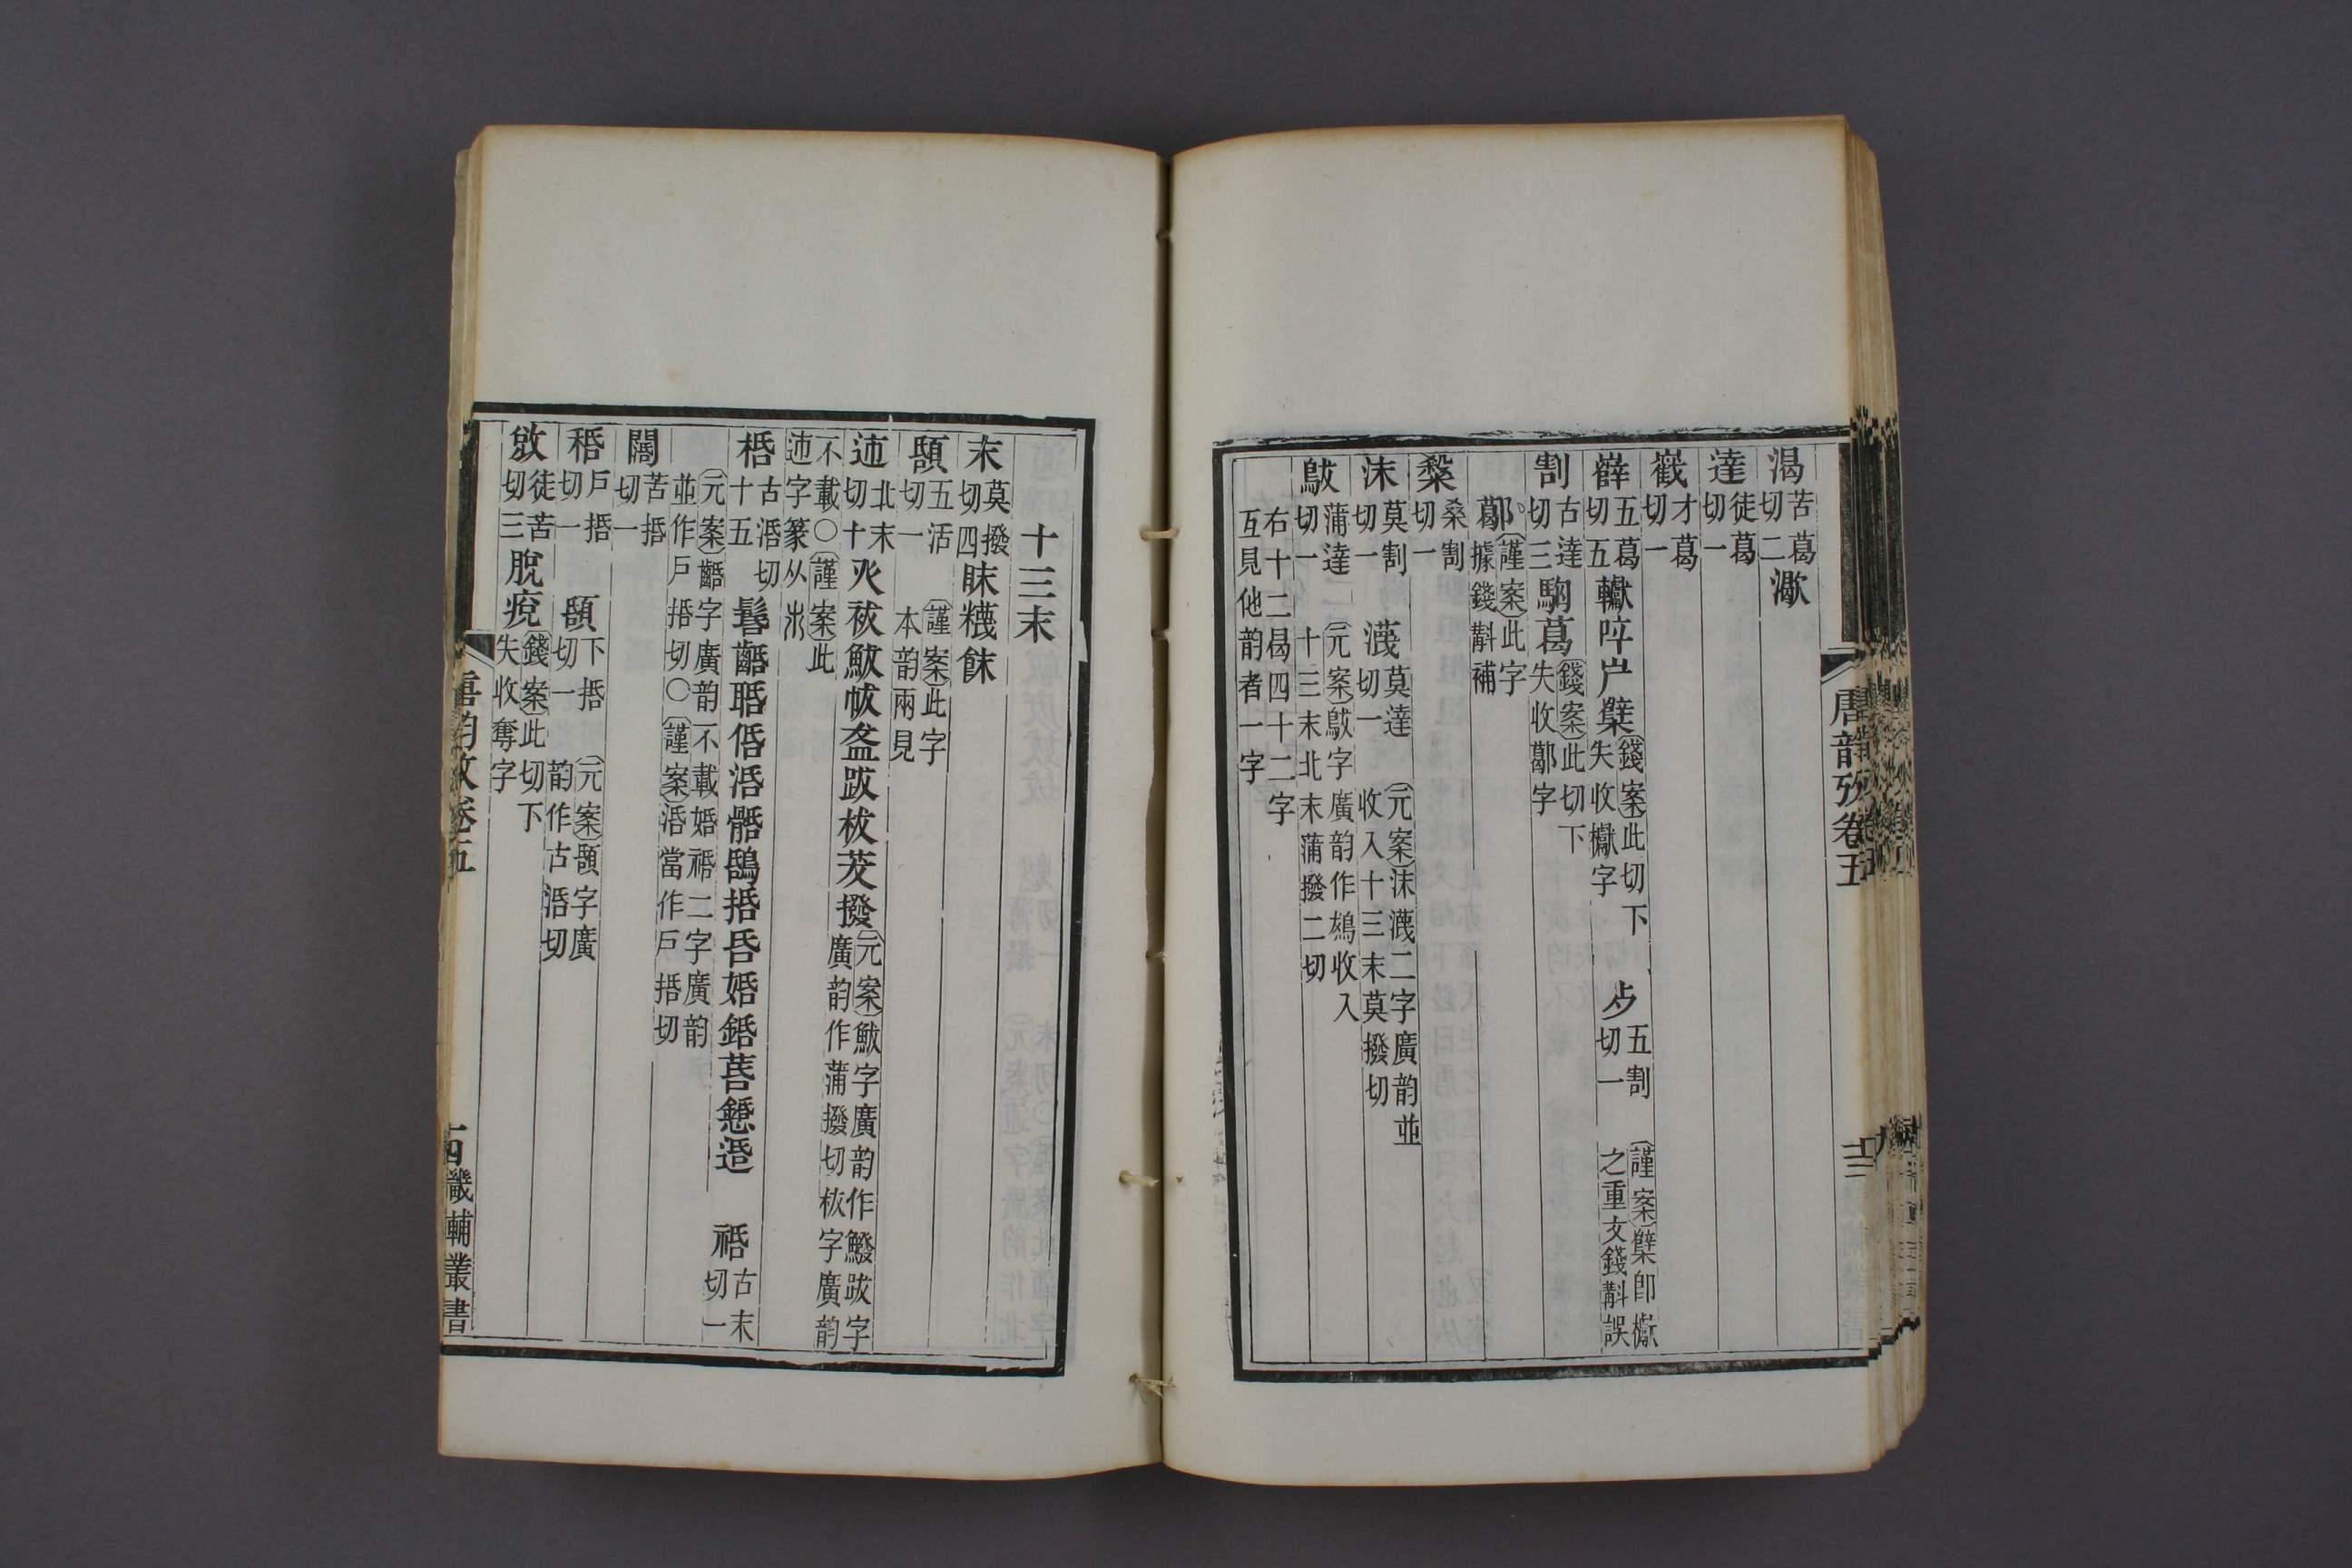 渴苦葛切二㵣
達徒葛切一
㦻才葛切一
嶭五葛切五轥啐屵櫱(錢案)此切下失收𣡌字 歺五割切一 (謹案)櫱即𣡌之重文錢斠誤
割古達切三駒葛(錢案)此切下失收鄿字
(謹案)此字據錢斠補
桑割切一
沫莫割切一 瀎莫達切一 (元案)沫瀎二字廣韵並收入十三末莫撥切
鼥蒲達切一 (元案)鼥字廣韵作鵏收入十三末北末蒲撥二切
右十二曷四十二字互見他韵者一字
唐韵攷卷五
十三
十三末
末莫撥切四眜䊳餗
頢五活切一 (謹案)此字本韵兩見
迊北末切十癶袚鮁帗盋跋柭茇撥(元案)鮁字廣韵作鱍跋字廣韵作蒲撥切柭字廣韵
不載〇(謹案)此迊字篆从𣎵
栝古活切十五髺𪘹聒佸活髂鴰括昏婚銛葀懖适 祮古末切一
(元案)𪘹字廣韵不載婚祮二字廣韵並作戶括切〇(謹案)活當作戶括切
闊苦括切一
秳戶括切一 頢下括切一 (元案)頢字廣韵作古活切
敓徒苦切三脫痥(錢案)此切下失收奪字
唐韵攷卷五
十四
畿輔叢書